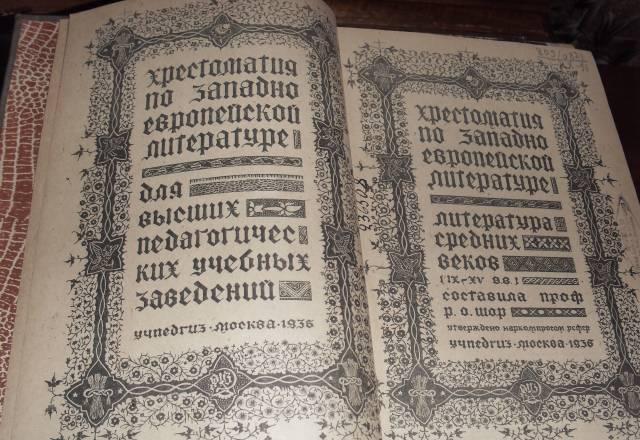 хрестоматия
по западно
европейской
литературе
для
высших
педагогичес
ких учебных
заведений
учпедгиз · москва · 1936
хрестоматия
по западно
европейской
литературе
литература
средних
веков
(IX–XV в.в.)
составила проф
р. о. шор
утверждено наркомпросом рсфср
учпедгиз · москва · 1936